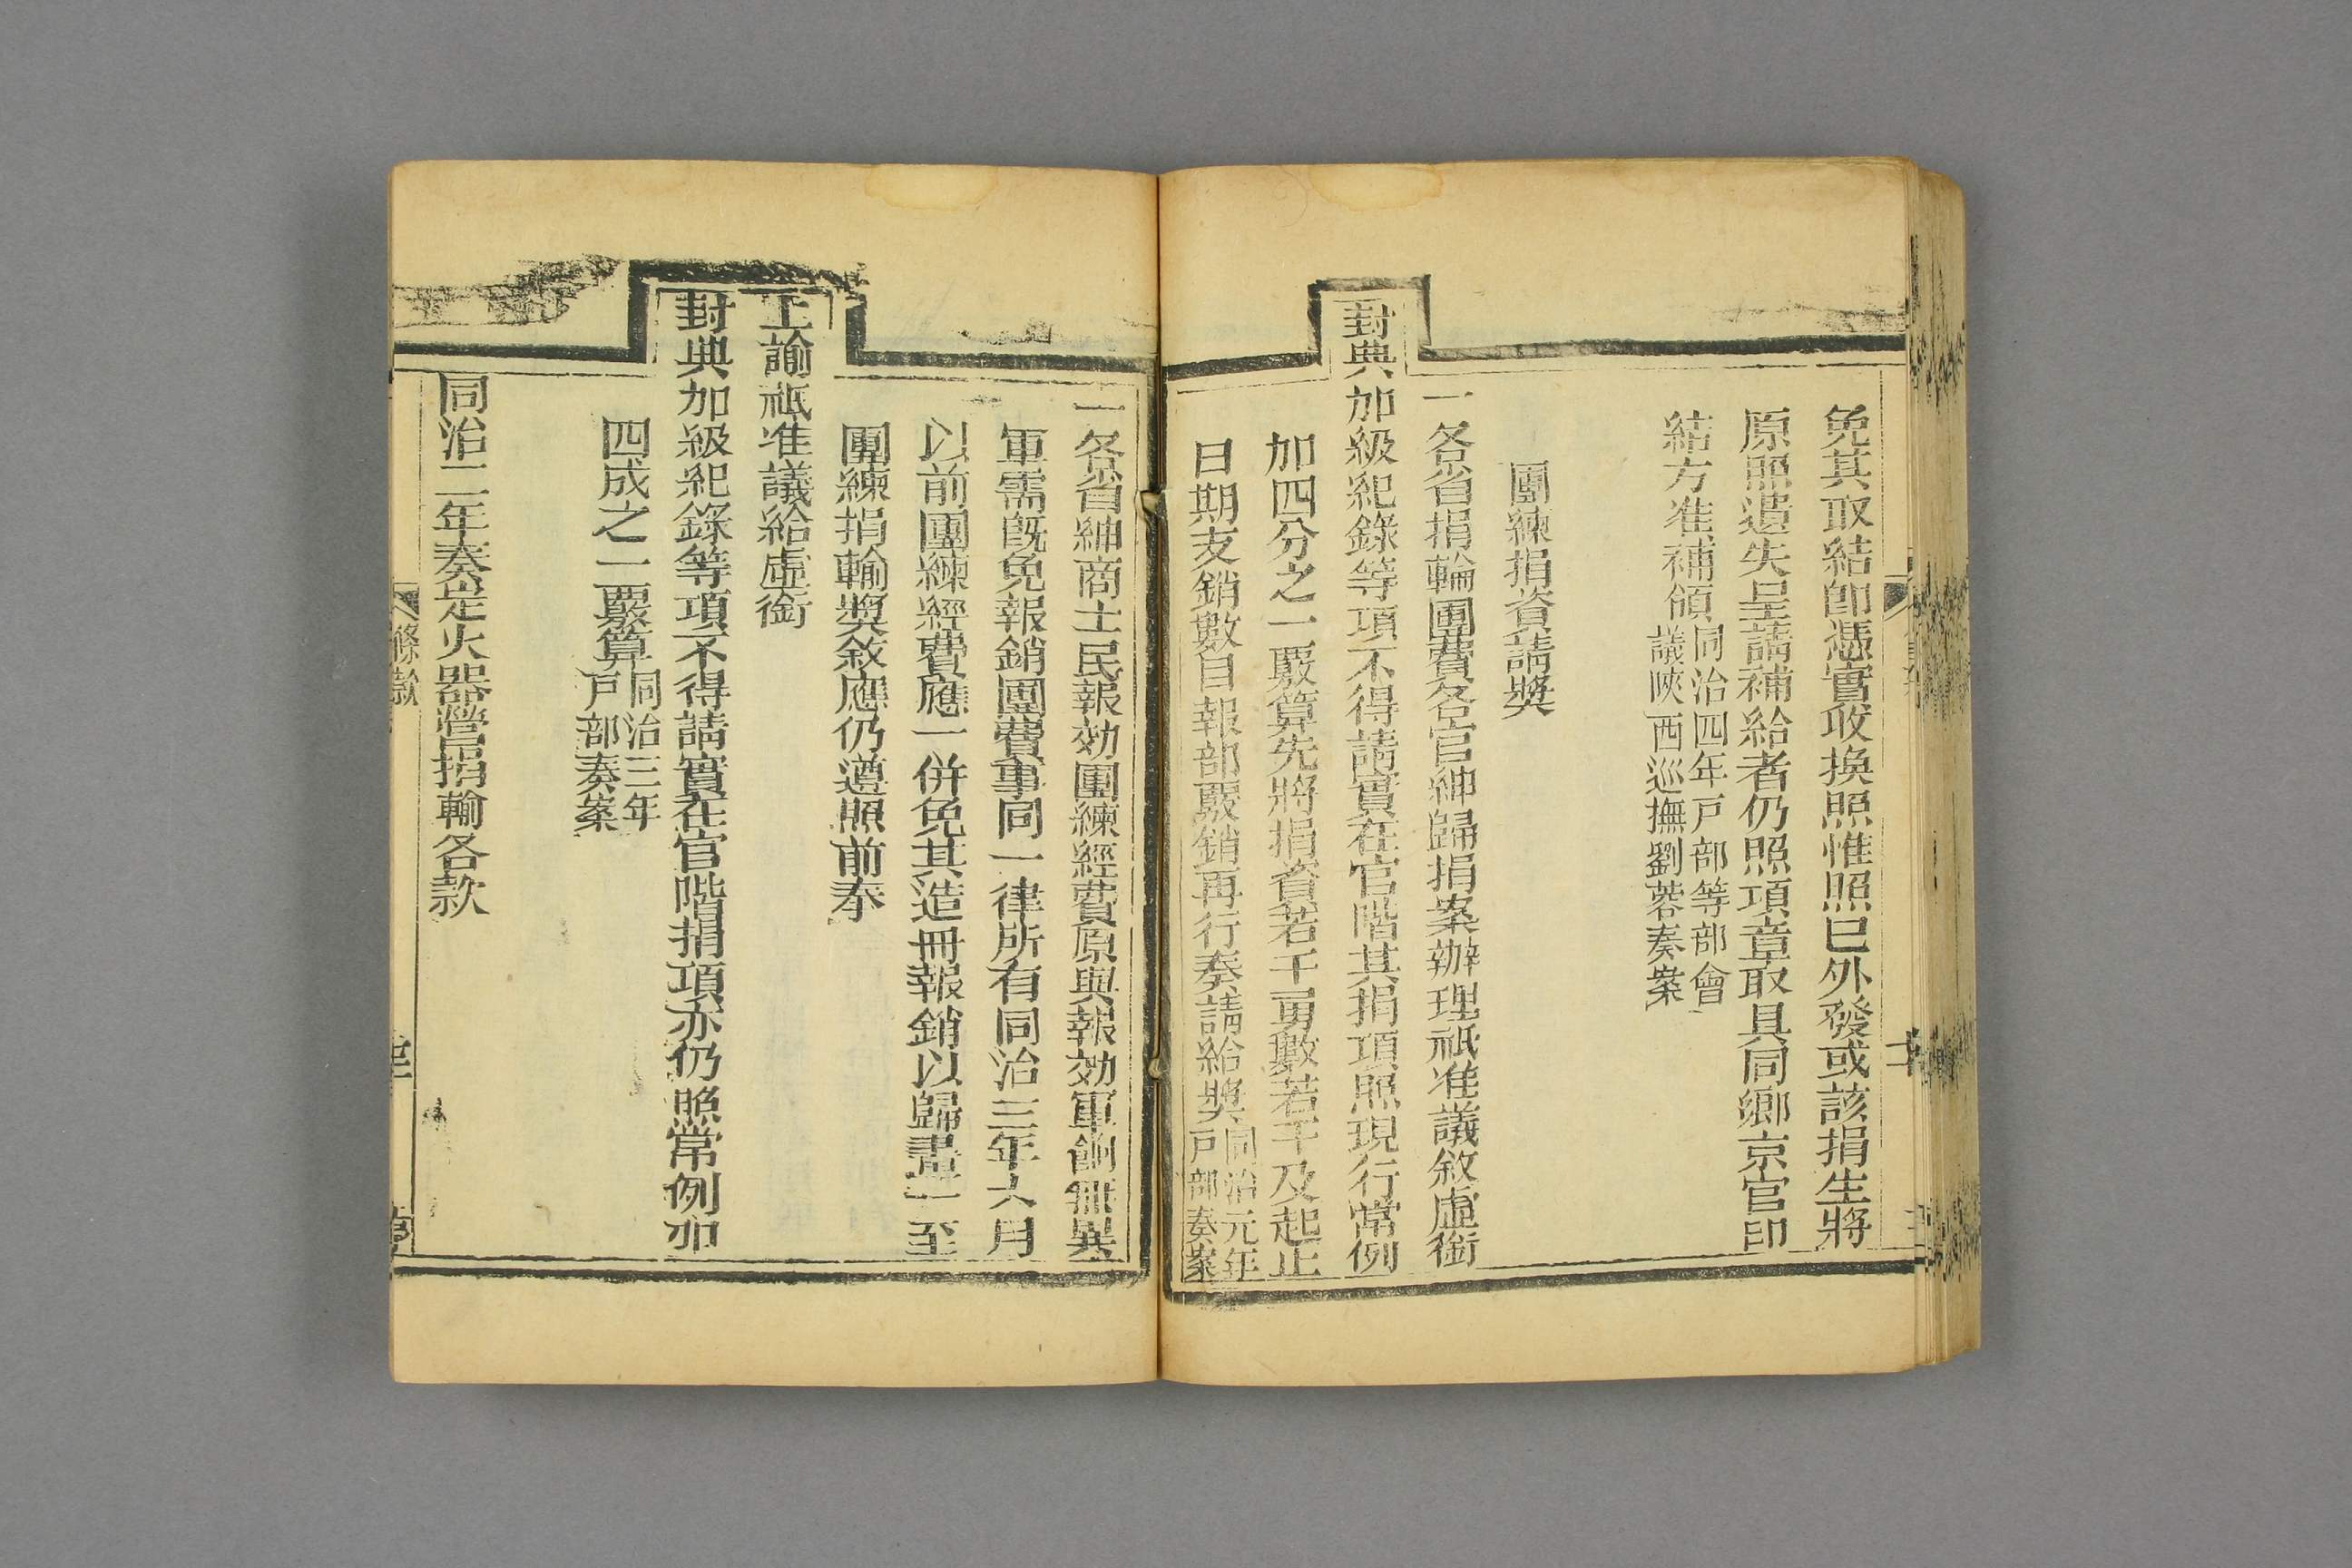 免其取結卽憑實收換照惟照已外發或該捐生將
原照遺失呈請補給者仍照項章取具同鄉京官印
結方准補領同治四年戸部等部會
議陜西巡撫劉蓉奏案
團練捐資請獎
一各省捐輪團費各官紳歸捐案辦理祇准議敘虛銜
封典加級紀錄等項不得請實在官階其捐項照現行常例
加四分之一覈算先將捐資若干勇數若干及起止
日期支銷數目報部覈銷再行奏請給獎同治元年
戸部奏案
一各省紳商士民報効團練經費原與報効軍餉無異
軍需旣免報銷團費事同一律所有同治三年六月
以前團練經費應一併免其造冊報銷以歸畫一至
團練捐輸獎敘應仍遵照前奉
上諭祇准議給虛銜
封典加級紀錄等項不得請實在官階捐項亦仍照常例加
四成之一覈算同治三年
戸部奏案
同治二年奏定火器營捐輸各款
條款